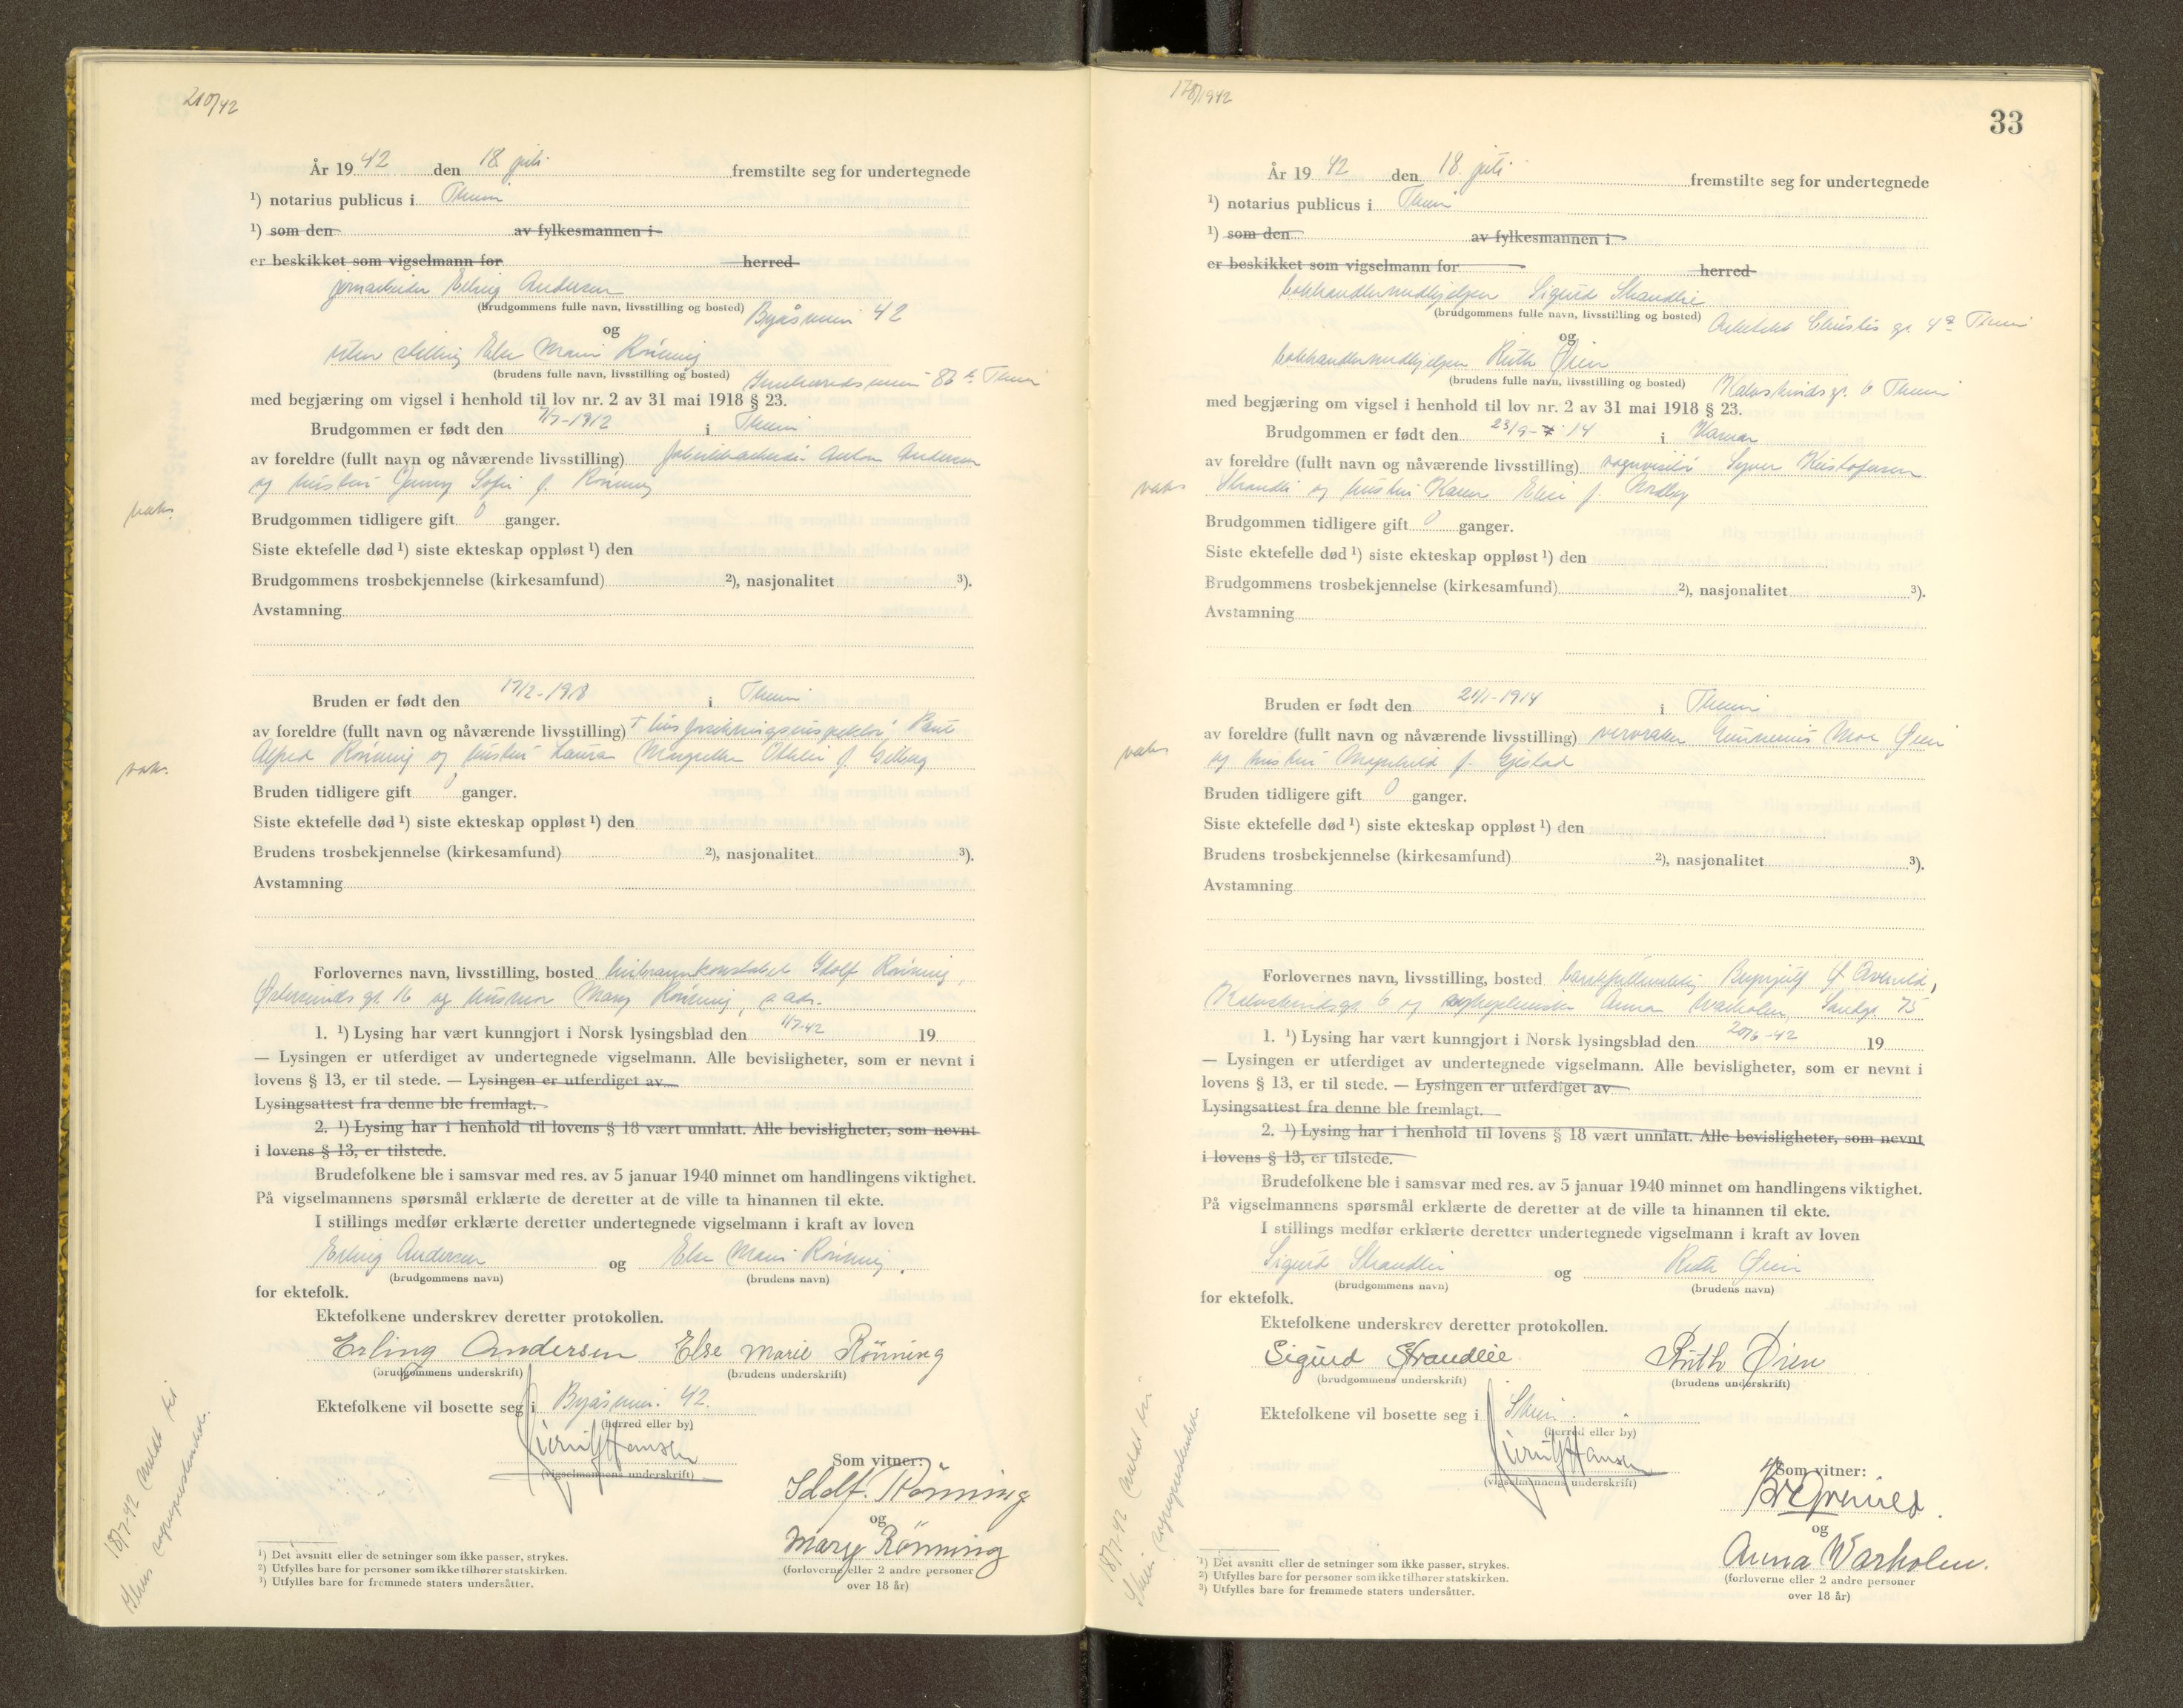 210/42
År 1942 den 18. juli fremstilte seg for undertegnede
¹) notarius publicus i Thm
¹) som den av fylkesmannen i
er beskikket som vigselmann for herred
jernarbeider Erling Andersen
(brudgommens fulle navn, livsstilling og bosted) Byåsveien 42
og
uten stilling Else Marie Rönning
(brudens fulle navn, livsstilling og bosted) Innherredsveien 83
med begjæring om vigsel i henhold til lov nr. 2 av 31 mai 1918 § 23.
Brudgommen er født den 7/7-1912 i
av foreldre (fullt navn og nåværende livsstilling) fabrikkarbeider Anton Andersen
og hustru Jenny Sofie f. Rönning
vaks.
Brudgommen tidligere gift 0 ganger.
Siste ektefelle død ¹) siste ekteskap oppløst ¹) den
Brudgommens trosbekjennelse (kirkesamfund) ²), nasjonalitet ³).
Avstamning
Bruden er født den 17/2-1918 i
av foreldre (fullt navn og nåværende livsstilling) Paul
Alfred Rönning og hustru Laura Margrethe Othilie f. Gilberg
vaks.
Bruden tidligere gift 0 ganger.
Siste ektefelle død ¹) siste ekteskap oppløst ¹) den
Brudens trosbekjennelse (kirkesamfund) ²), nasjonalitet ³).
Avstamning
Forlovernes navn, livsstilling, bosted Idolf Rönning,
Östersunds gt. 16 og husmor Mary Rönning, s. adr.
1. ¹) Lysing har vært kunngjort i Norsk lysingsblad den 1/7-42 19
— Lysingen er utferdiget av undertegnede vigselmann. Alle bevisligheter, som er nevnt i
lovens § 13, er til stede. — Lysingen er utferdiget av
Lysingsattest fra denne ble fremlagt.
2. ¹) Lysing har i henhold til lovens § 18 vært unnlatt. Alle bevisligheter, som nevnt
i lovens § 13, er tilstede.
Brudefolkene ble i samsvar med res. av 5 januar 1940 minnet om handlingens viktighet.
På vigselmannens spørsmål erklærte de deretter at de ville ta hinannen til ekte.
I stillings medfør erklærte deretter undertegnede vigselmann i kraft av loven
Erling Andersen og Else Marie Rönning.
(brudgommens navn) (brudens navn)
for ektefolk.
Ektefolkene underskrev deretter protokollen.
Erling Andersen Else Marie Rönning
(brudgommens underskrift) (brudens underskrift)
Ektefolkene vil bosette seg i Byåsveien 42.
(herred eller by)
(vigselmannens underskrift)
Som vitner:
Idolf. Rönning
og
Mary Rönning
(forloverne eller 2 andre personer
over 18 år)
¹) Det avsnitt eller de setninger som ikke passer, strykes.
²) Utfylles bare for personer som ikke tilhører statskirken.
³) Utfylles bare for fremmede staters undersåtter.
18/7-42 meldt til
178/1942
33
År 1942 den 18. juli fremstilte seg for undertegnede
¹) notarius publicus i Thm
¹) som den av fylkesmannen i
er beskikket som vigselmann for herred
bokhandlermedhjelper Sigurd Strandlie
(brudgommens fulle navn, livsstilling og bosted) Arkitekt Christies gt. 4
og
bokhandlermedhjelper Ruth Öien
(brudens fulle navn, livsstilling og bosted) Kalvskindsgt. 6
med begjæring om vigsel i henhold til lov nr. 2 av 31 mai 1918 § 23.
Brudgommen er født den 23/9-14 i Hamar
av foreldre (fullt navn og nåværende livsstilling) vognvisitör Syver Kristofersen
Strandli og hustru Karen Elise f. Nordby
vaks
Brudgommen tidligere gift 0 ganger.
Siste ektefelle død ¹) siste ekteskap oppløst ¹) den
Brudgommens trosbekjennelse (kirkesamfund) ²), nasjonalitet ³).
Avstamning
Bruden er født den 21/1-1914 i
av foreldre (fullt navn og nåværende livsstilling) Moe Öien
og hustru Magnhild f. Gjestad
vaks
Bruden tidligere gift 0 ganger.
Siste ektefelle død ¹) siste ekteskap oppløst ¹) den
Brudens trosbekjennelse (kirkesamfund) ²), nasjonalitet ³).
Avstamning
Forlovernes navn, livsstilling, bosted Brynjulf
Kalvskindsgt. 6 og Anna Warholm, Sandgt. 75
1. ¹) Lysing har vært kunngjort i Norsk lysingsblad den 20/6-42 19
— Lysingen er utferdiget av undertegnede vigselmann. Alle bevisligheter, som er nevnt i
lovens § 13, er til stede. — Lysingen er utferdiget av
Lysingsattest fra denne ble fremlagt.
2. ¹) Lysing har i henhold til lovens § 18 vært unnlatt. Alle bevisligheter, som nevnt
i lovens § 13, er tilstede.
Brudefolkene ble i samsvar med res. av 5 januar 1940 minnet om handlingens viktighet.
På vigselmannens spørsmål erklærte de deretter at de ville ta hinannen til ekte.
I stillings medfør erklærte deretter undertegnede vigselmann i kraft av loven
Sigurd Strandlie og Ruth Öien
(brudgommens navn) (brudens navn)
for ektefolk.
Ektefolkene underskrev deretter protokollen.
Sigurd Strandlie Ruth Öien
(brudgommens underskrift) (brudens underskrift)
Ektefolkene vil bosette seg i
(herred eller by)
(vigselmannens underskrift)
Som vitner:
og
Anna Warholm.
(forloverne eller 2 andre personer
over 18 år)
¹) Det avsnitt eller de setninger som ikke passer, strykes.
²) Utfylles bare for personer som ikke tilhører statskirken.
³) Utfylles bare for fremmede staters undersåtter.
18/7-42 meldt til